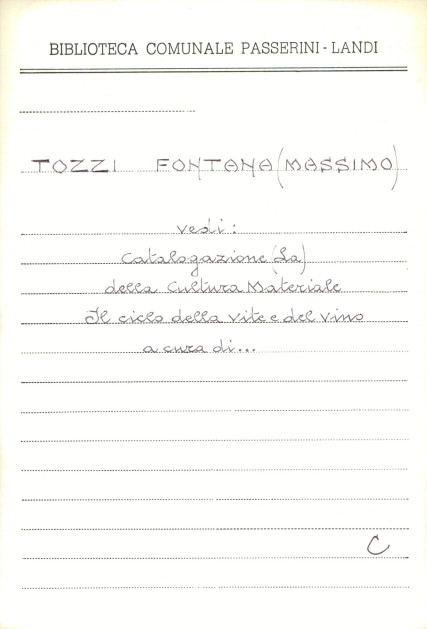 BIBLIOTECA COMUNALE PASSERINI - LANDI
TOZZI FONTANA (MASSIMO)
vedi:
Catalogazione (La)
della Cultura Materiale
Il ciclo della vite e del vino
a cura di...
C